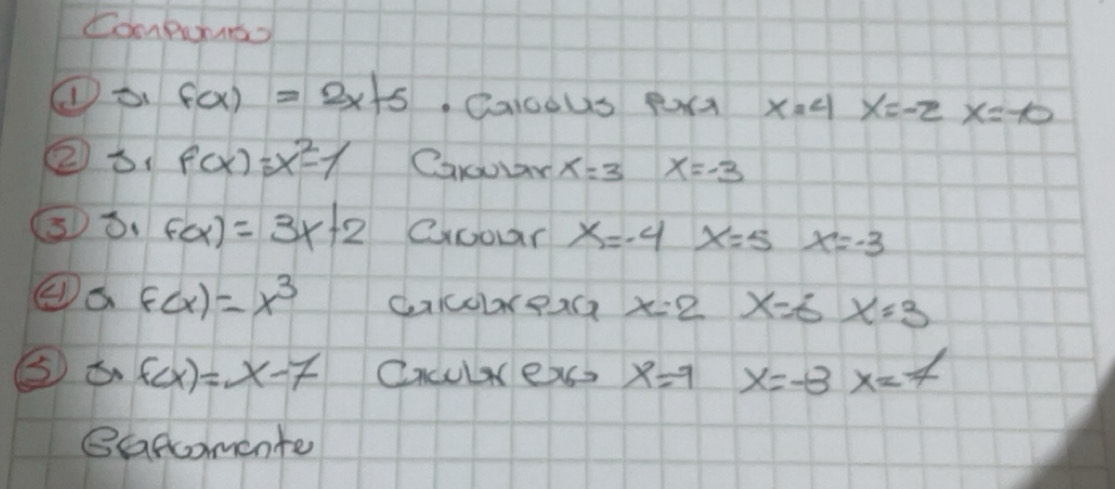 ① Si f(x) = 2x+5 . Calculus Para x=4 x=-2 x=-10
② Si f(x)=x²-1 Calcular x=3 x=-3
③ Si f(x)= 3x+2 Calcular x=-4 x=5 x=-3
④ Si f(x)=x³ Calcular para x=2 x=6 x=3
⑤ Si f(x)=x-7 Calcular para x=9 x=-8 x=7
Graficamente